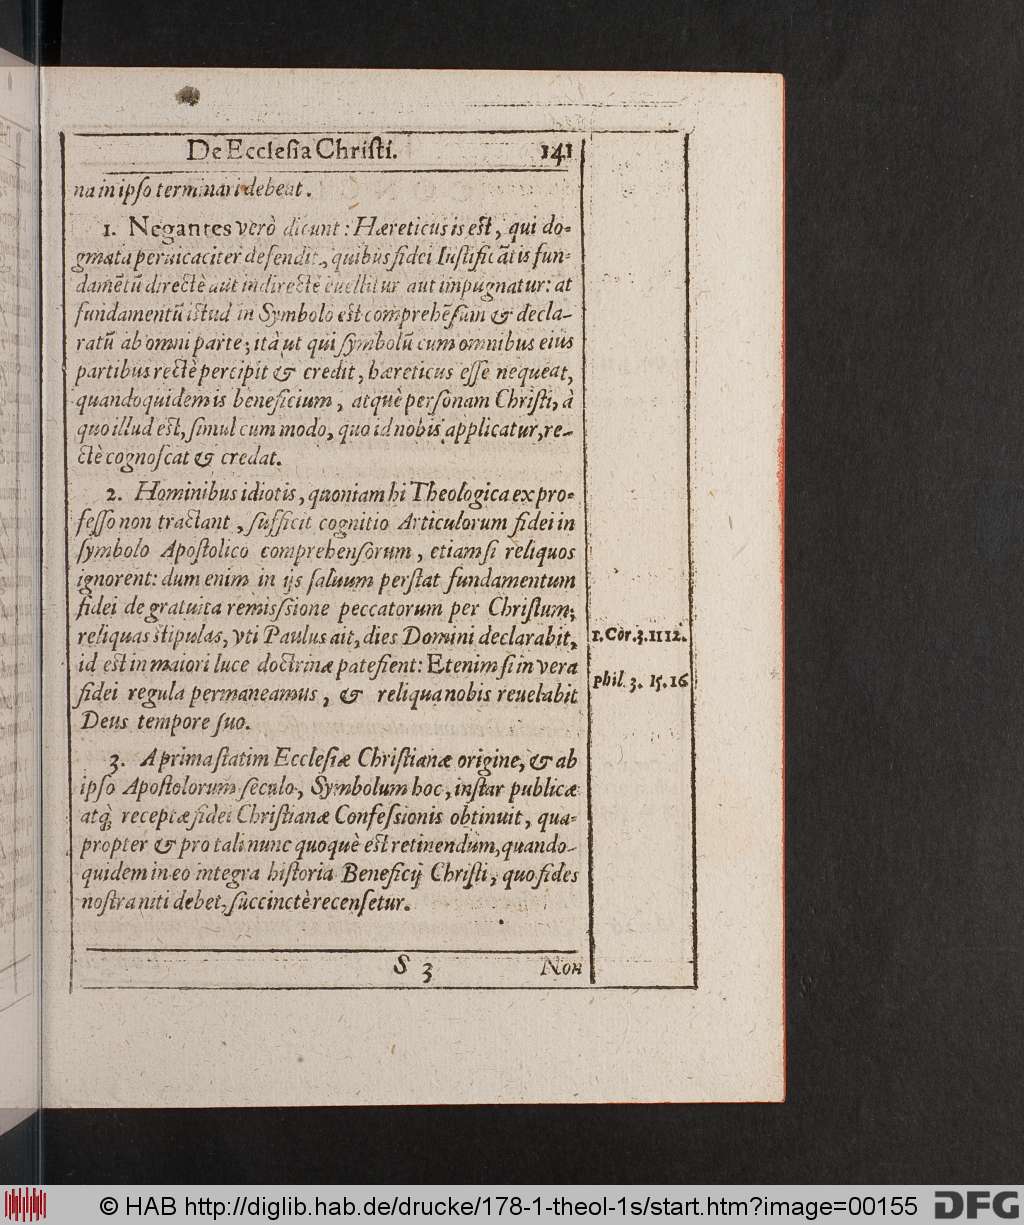 De Ecclesia Christi. 141
na in ipso terminari debeat.
1. Negantes verò dicunt: Hæreticus is est, qui do-
gmata peruicaciter defendit, quibus fidei Iustificãtis fun-
damẽtũ directè aut indirectè euellitur aut impugnatur: at
fundamentũ istud in Symbolo est comprehẽsum & decla-
ratũ ab omni parte; ità ut qui symbolũ cum omnibus eius
partibus rectè percipit & credit, hæreticus esse nequeat,
quandoquidem is beneficium, atquè personam Christi, à
quo illud est, simul cum modo, quo id nobis applicatur, re-
ctè cognoscat & credat.
2. Hominibus idiotis, quoniam hi Theologica ex pro-
fesso non tractant, sufficit cognitio Articulorum fidei in
symbolo Apostolico comprehensorum, etiamsi reliquos
ignorent: dum enim in ijs saluum perstat fundamentum
fidei de gratuita remissione peccatorum per Christum;
reliquas stipulas, vti Paulus ait, dies Domini declarabit, 1. Cor. 3. 11 12.
id est in maiori luce doctrinæ patefient: Etenim si in vera
fidei regula permaneamus, & reliqua nobis reuelabit phil. 3. 15. 16
Deus tempore suo.
3. A prima statim Ecclesiæ Christianæ origine, & ab
ipso Apostolorum seculo, Symbolum hoc, instar publicæ
atq; receptæ fidei Christianæ Confessionis obtinuit, qua-
propter & pro tali nunc quoquè est retinendum, quando-
quidem in eo integra historia Beneficij Christi, quo fides
nostra niti debet, succinctè recensetur.
S 3 Non
© HAB http://diglib.hab.de/drucke/178-1-theol-1s/start.htm?image=00155 DFG